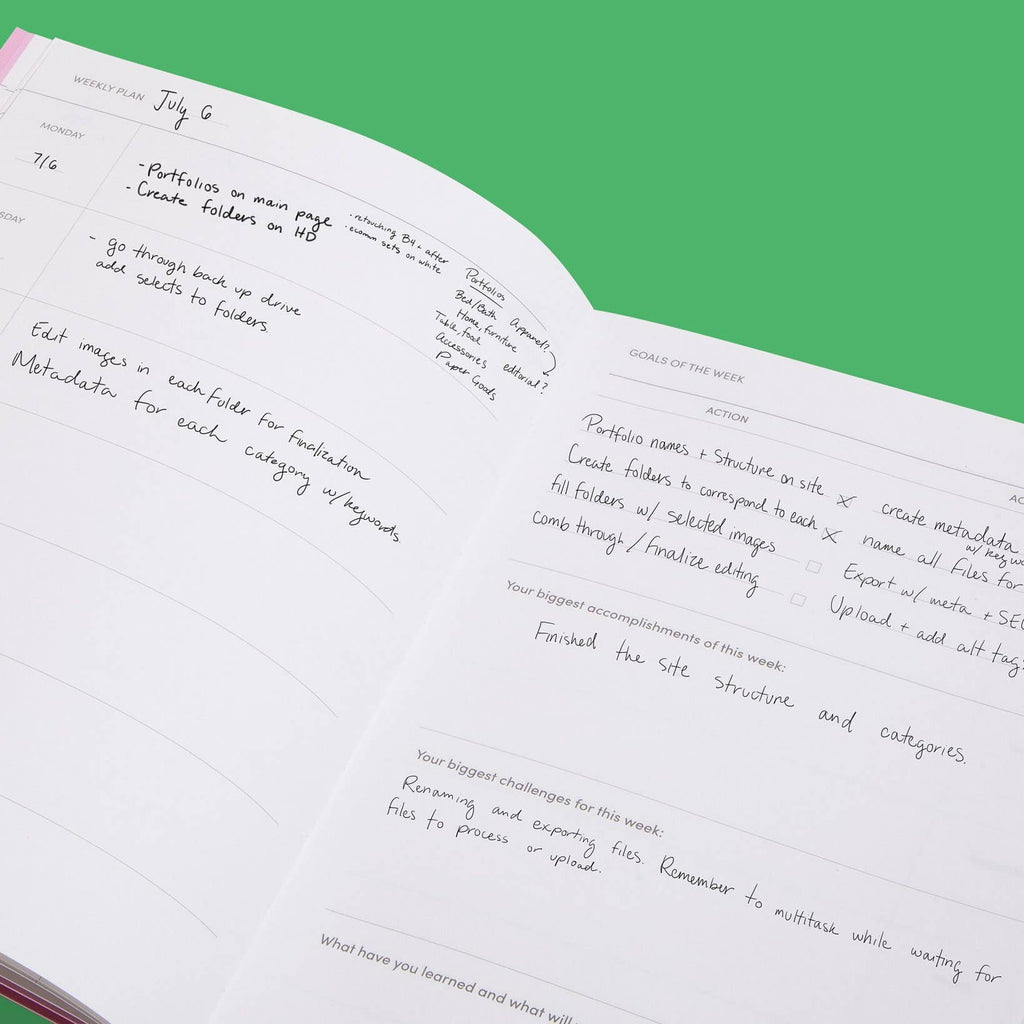 WEEKLY PLAN July 6
MONDAY
7/6
- Portfolios on main page
- Create folders on HD
· retouching B4 + after
· ecomm sets on white
Portfolios
Bed/Bath Apparel?
Home, furniture
Table, food
Accessories editorial?
Paper Goods
SDAY
- go through back up drive
add selects to folders
Edit images in each folder for finalization
Metadata for each category w/keywords.
GOALS OF THE WEEK
ACTION
AC
Portfolio names + Structure on site
Create folders to correspond to each
fill folders w/ selected images
comb through / finalize editing
create metadata
w/ keywo
name all files for
Export w/ meta + SEO
Upload + add alt tags
Your biggest accomplishments of this week:
Finished the site structure and categories.
Your biggest challenges for this week:
Renaming and exporting files. Remember to multitask while waiting for
files to process or upload.
What have you learned and what will